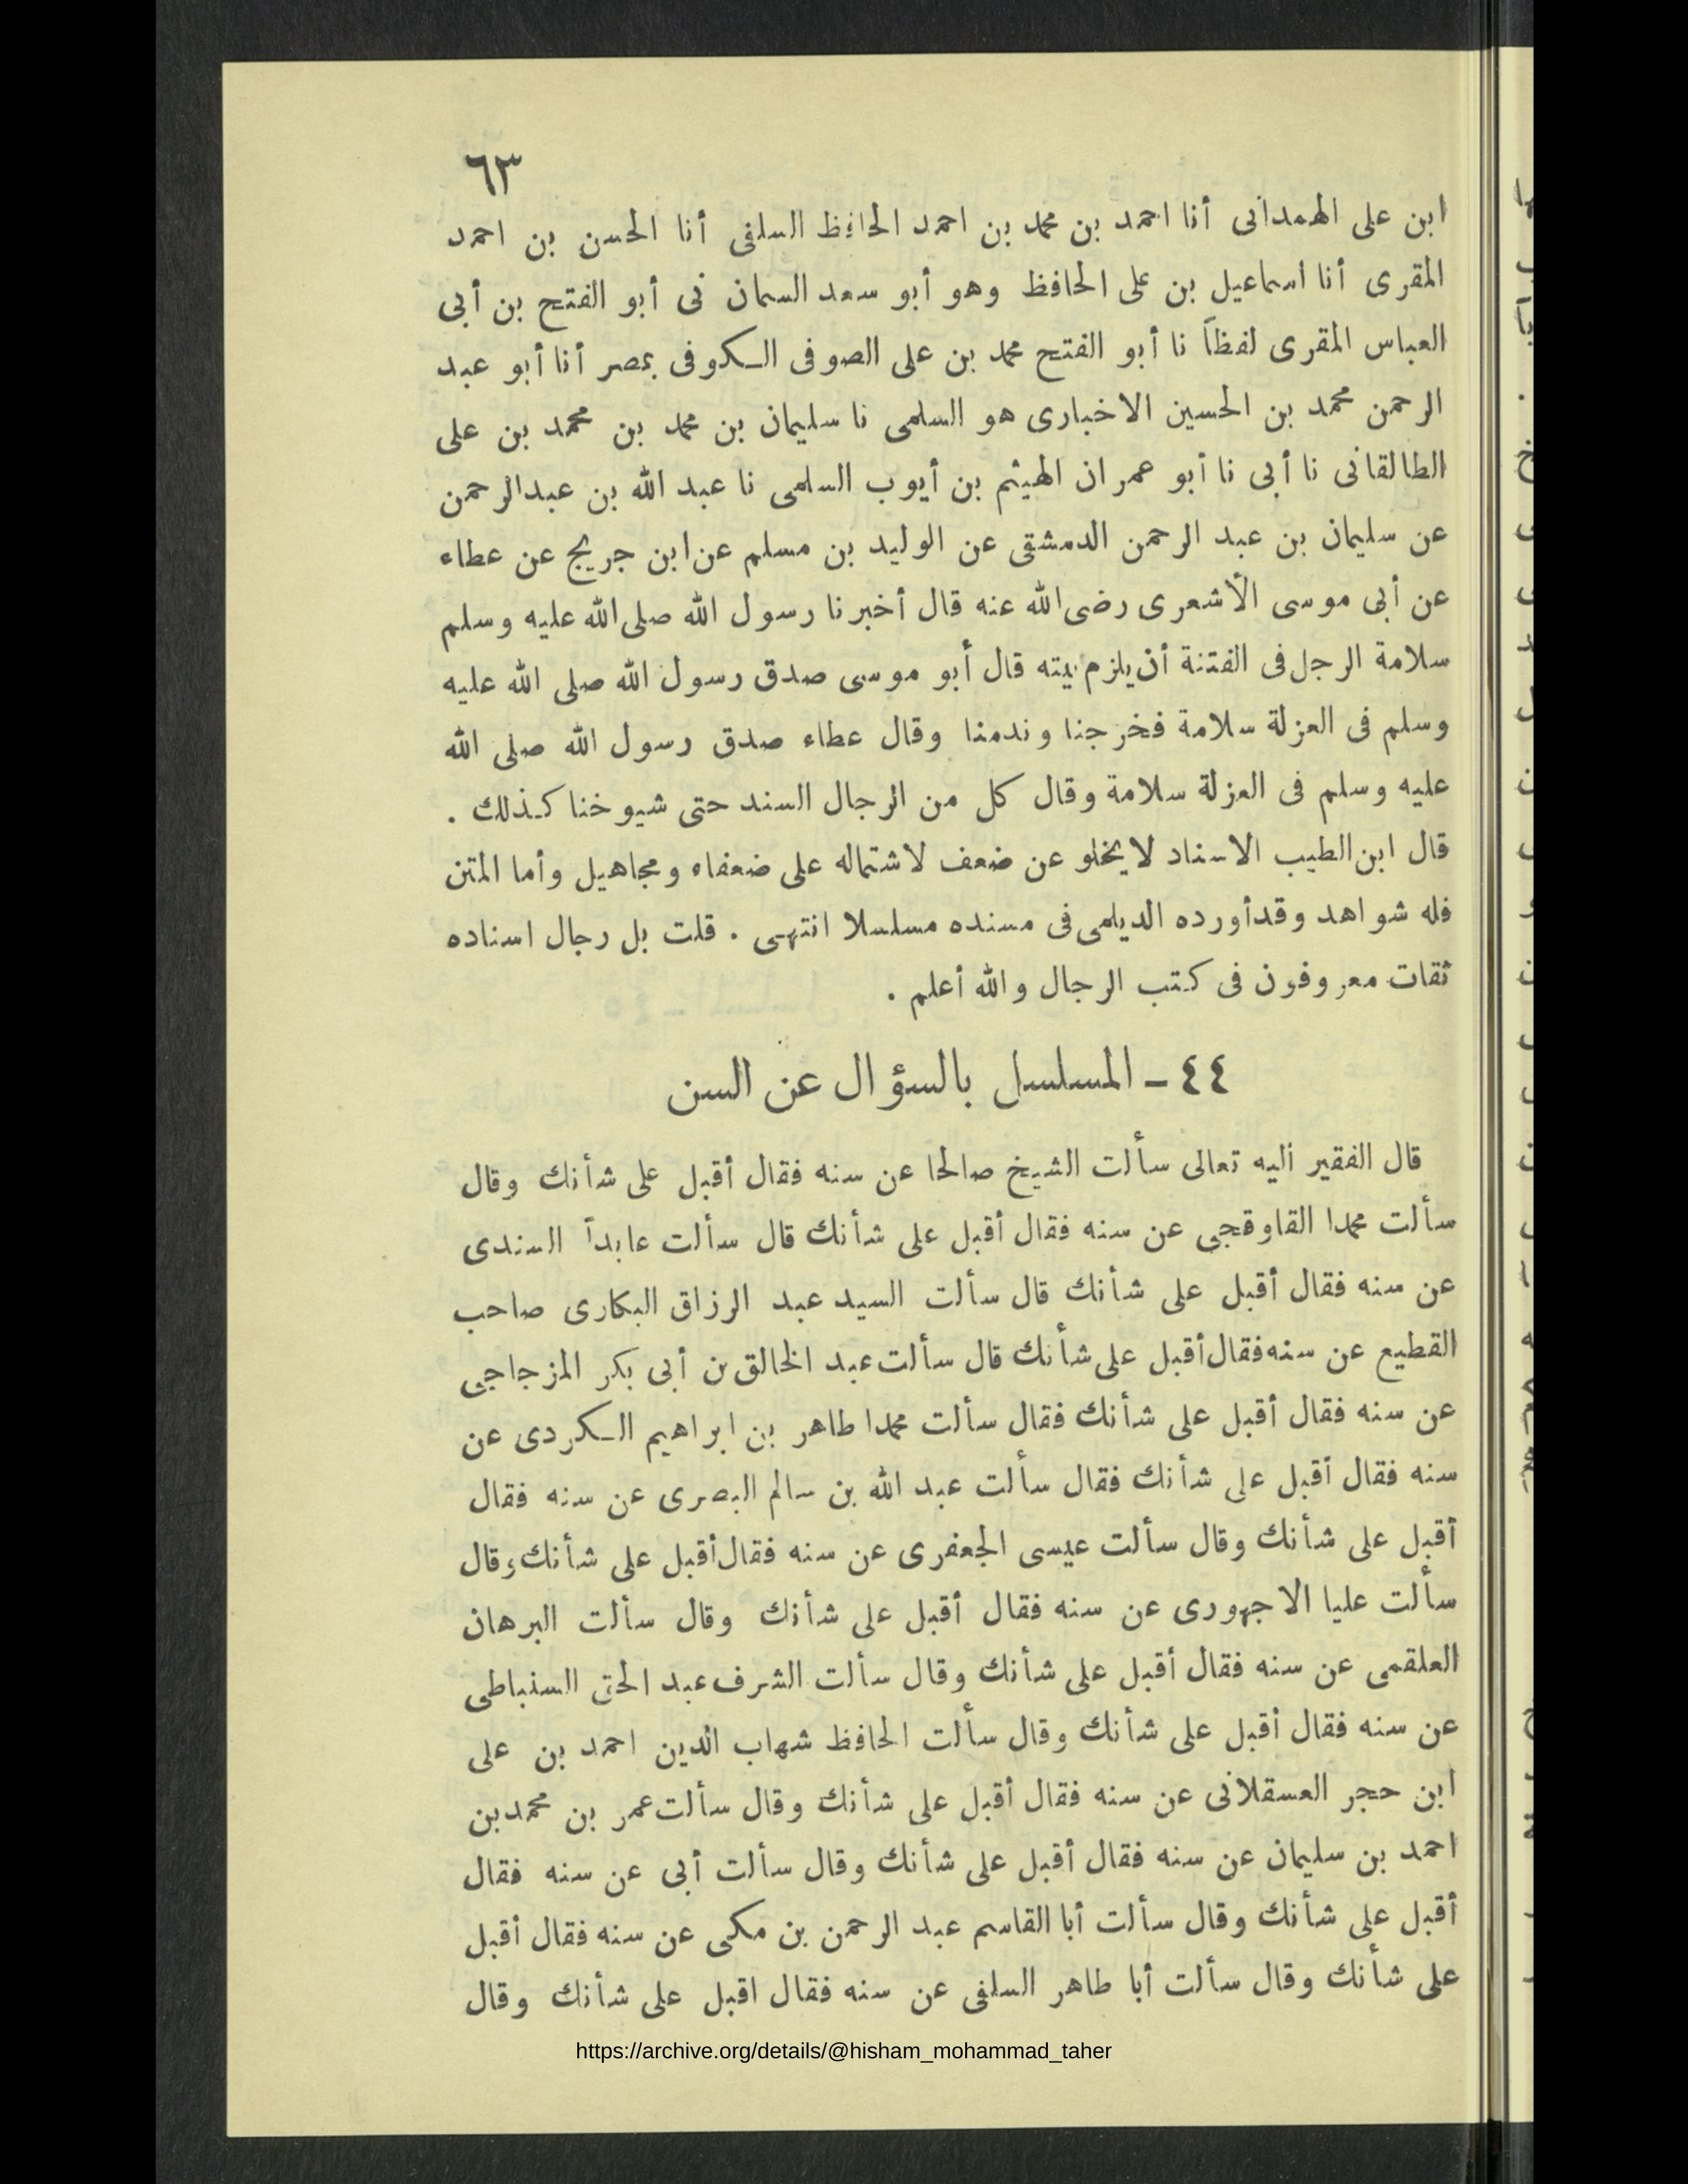 ٦٣
ابن على الهمدانى أنا احمد بن محمد بن احمد الحافظ السلفى أنا الحسن بن احمد
المقرى أنا اسماعيل بن على الحافظ وهو أبو سعد السمان نى أبو الفتح بن أبى
العباس المقرى لفظاً نا أبو الفتح محمد بن على الصوفى الكوفى بمصر أنا أبو عبد
الرحمن محمد بن الحسين الاخبارى هو السلمى نا سليمان بن محمد بن محمد بن على
الطالقانى نا أبى نا أبو عمران الهيثم بن أيوب السلمى نا عبد الله بن عبدالرحمن
عن سليمان بن عبد الرحمن الدمشقى عن الوليد بن مسلم عن ابن جريج عن عطاء
عن أبى موسى الأشعرى رضى الله عنه قال أخبرنا رسول الله صلى الله عليه وسلم
سلامة الرجل فى الفتنة أن يلزم بيته قال أبو موسى صدق رسول الله صلى الله عليه
وسلم فى العزلة سلامة فخرجنا وندمنا وقال عطاء صدق رسول الله صلى الله
عليه وسلم فى العزلة سلامة وقال كل من الرجال السند حتى شيوخنا كذلك .
قال ابن الطيب الاسناد لا يخلو عن ضعف لاشتماله على ضعفاء ومجاهيل وأما المتن
فله شواهد وقد أورده الديلمى فى مسنده مسلسلا انتهى . قلت بل رجال اسناده
ثقات معروفون فى كتب الرجال والله أعلم .
٤٤ - المسلسل بالسؤال عن السن
قال الفقير اليه تعالى سألت الشيخ صالحا عن سنه فقال أقبل على شأنك وقال
سألت محمدا القاوقجى عن سنه فقال أقبل على شأنك قال سألت عابداً السندى
عن سنه فقال أقبل على شأنك قال سألت السيد عبد الرزاق البكارى صاحب
القطيع عن سنه فقال أقبل على شأنك قال سألت عبد الخالق بن أبى بكر المزجاجى
عن سنه فقال أقبل على شأنك فقال سألت محمدا طاهر بن ابراهيم الكردى عن
سنه فقال أقبل على شأنك فقال سألت عبد الله بن سالم البصرى عن سنه فقال
أقبل على شأنك وقال سألت عيسى الجعفرى عن سنه فقال أقبل على شأنك وقال
سألت عليا الاجهورى عن سنه فقال أقبل على شأنك وقال سألت البرهان
العلقمى عن سنه فقال أقبل على شأنك وقال سألت الشرف عبد الحق السنباطى
عن سنه فقال أقبل على شأنك وقال سألت الحافظ شهاب الدين احمد بن على
ابن حجر العسقلانى عن سنه فقال أقبل على شأنك وقال سألت عمر بن محمد بن
احمد بن سليمان عن سنه فقال أقبل على شأنك وقال سألت أبى عن سنه فقال
أقبل على شأنك وقال سألت أبا القاسم عبد الرحمن بن مكى عن سنه فقال أقبل
على شأنك وقال سألت أبا طاهر السلفى عن سنه فقال اقبل على شأنك وقال
https://archive.org/details/@hisham_mohammad_taher